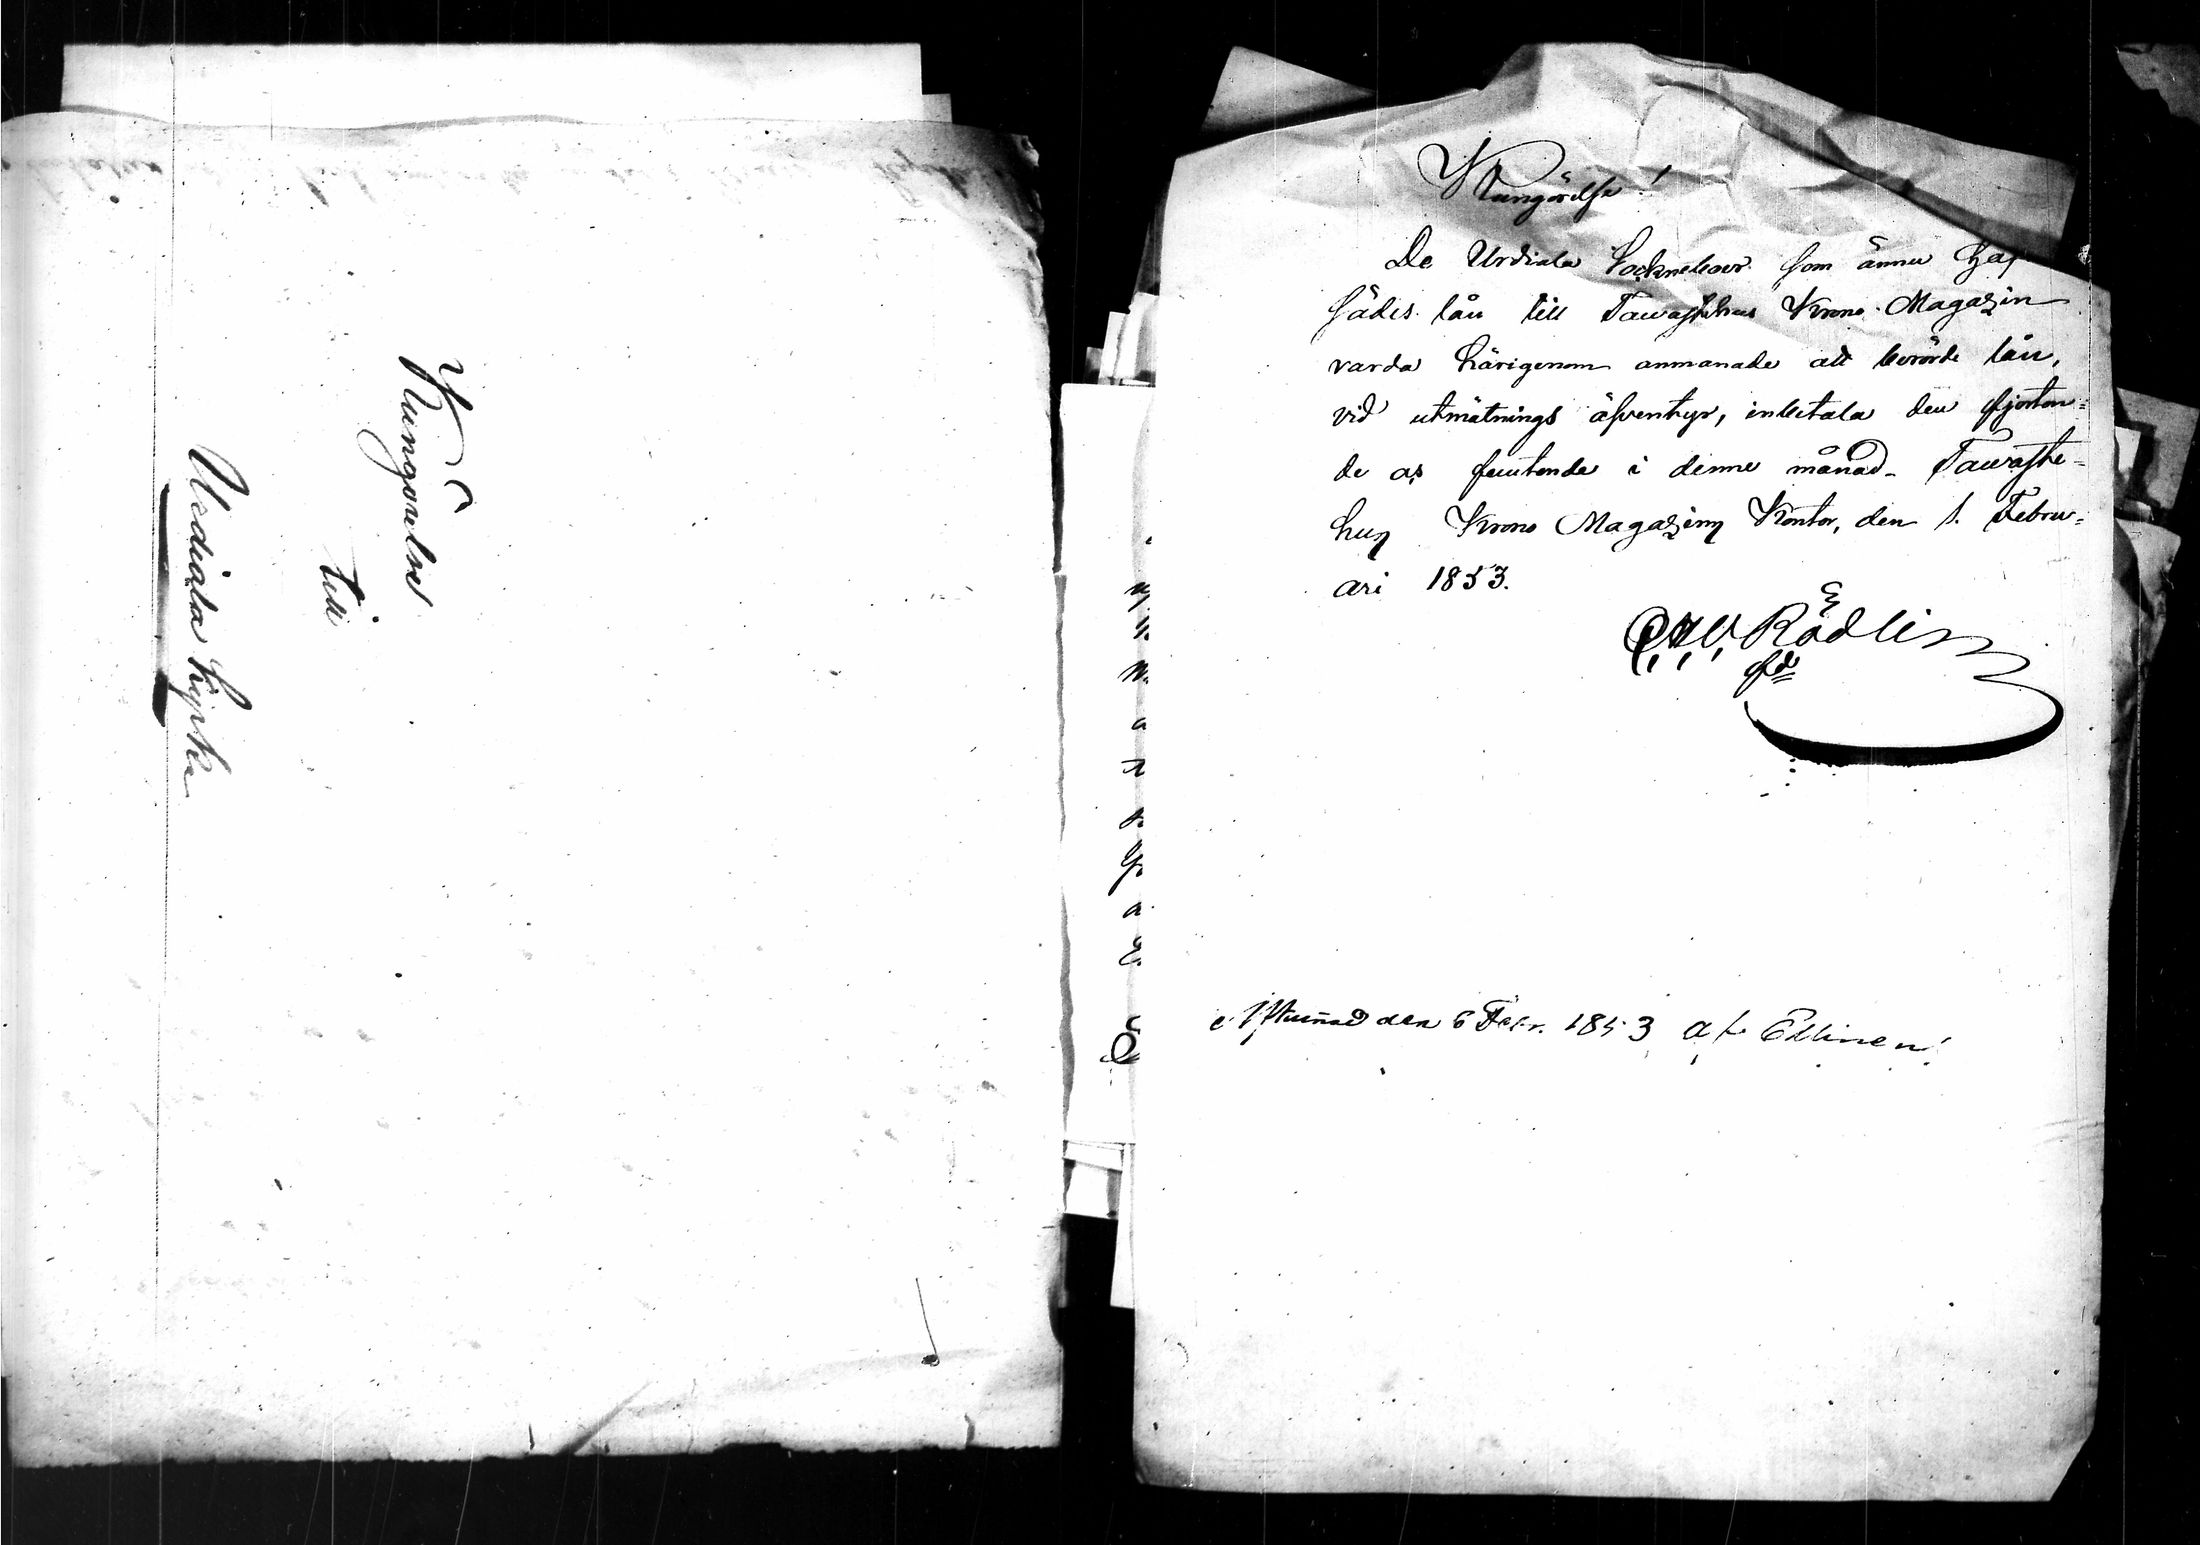 Kungörelse
till
Urdiala Kyrka
Kungörelse!
De Urdiala Sockneboer som ännu haf
sädes lån till Tawastehus Krono Magazin
varda härigenom anmanade att berörde lån,
vid utmätnings äfventyr, inbetala den fjorton-
de och femtonde i denne månad. Tawaste-
hus Krono Magazins Kontor, den 1. Febru-
ari 1853.
Rödlin
den 6 Febr. 1853 af Ellinen!